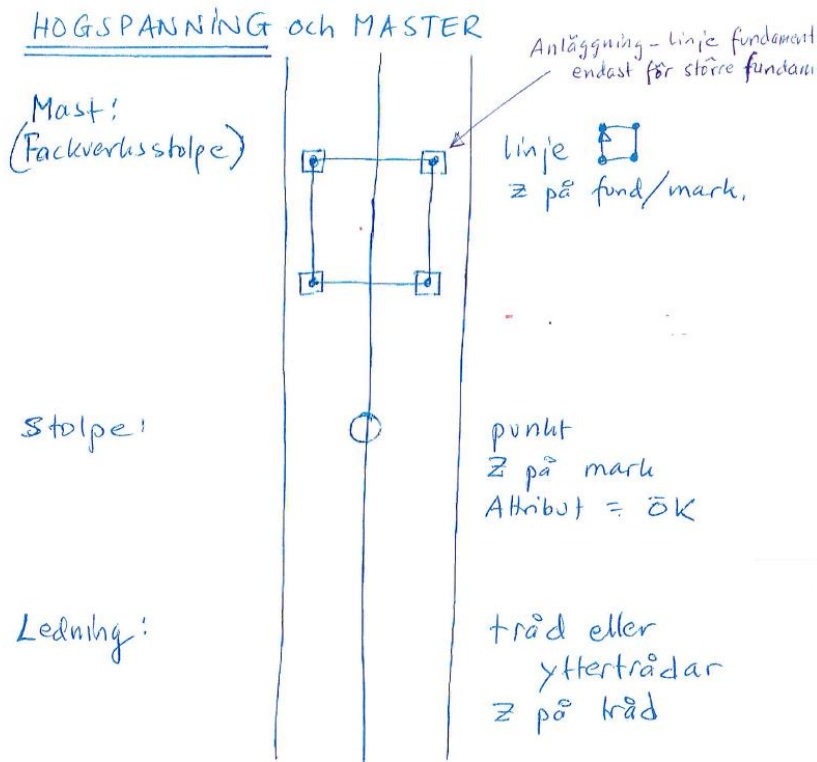 HÖGSPANNING och MASTER
Anläggning - linje fundament
endast för större fundam
Mast:
(Fackverksstolpe)
linje
Z på fund/mark.
Stolpe:
punkt
Z på mark
Attribut = ÖK
Ledning:
tråd eller
yttertrådar
Z på tråd